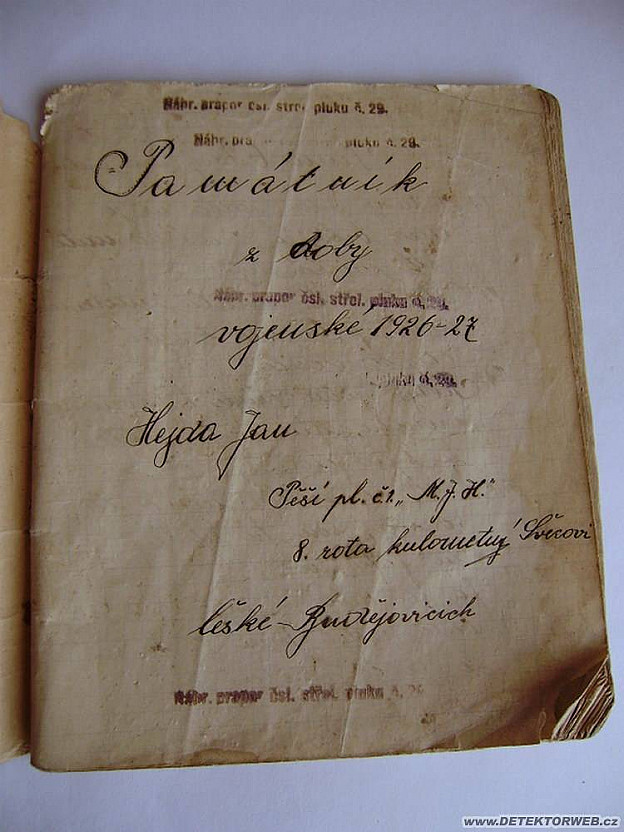 Náhr. prapor čsl. střel. pluku č. 29.
Náhr. pra čsl. pluku č. 29.
Památník
z doby
Náhr. prapor čsl. střel. pluku č. 29.
vojenské 1926-27
pluku č. 29.
Hejda Jan
Pěší pl. č 1. „M. J. H."
8. rota kulometný
české-Budějovicích
Náhr. prapor čsl. střel. pluku č. 29
www.DETEKTORWEB.cz